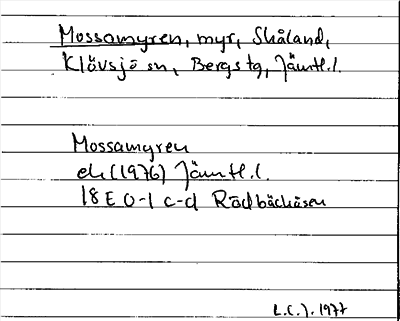 Mossamyren, myr, Skåland,
Klövsjö sn, Bergs tg, Jämtl.l.
Mossamyren
ek (1976) Jämtl.l.
18E 0-1 c-d Rödbäckåsen
L.C.J. 1977